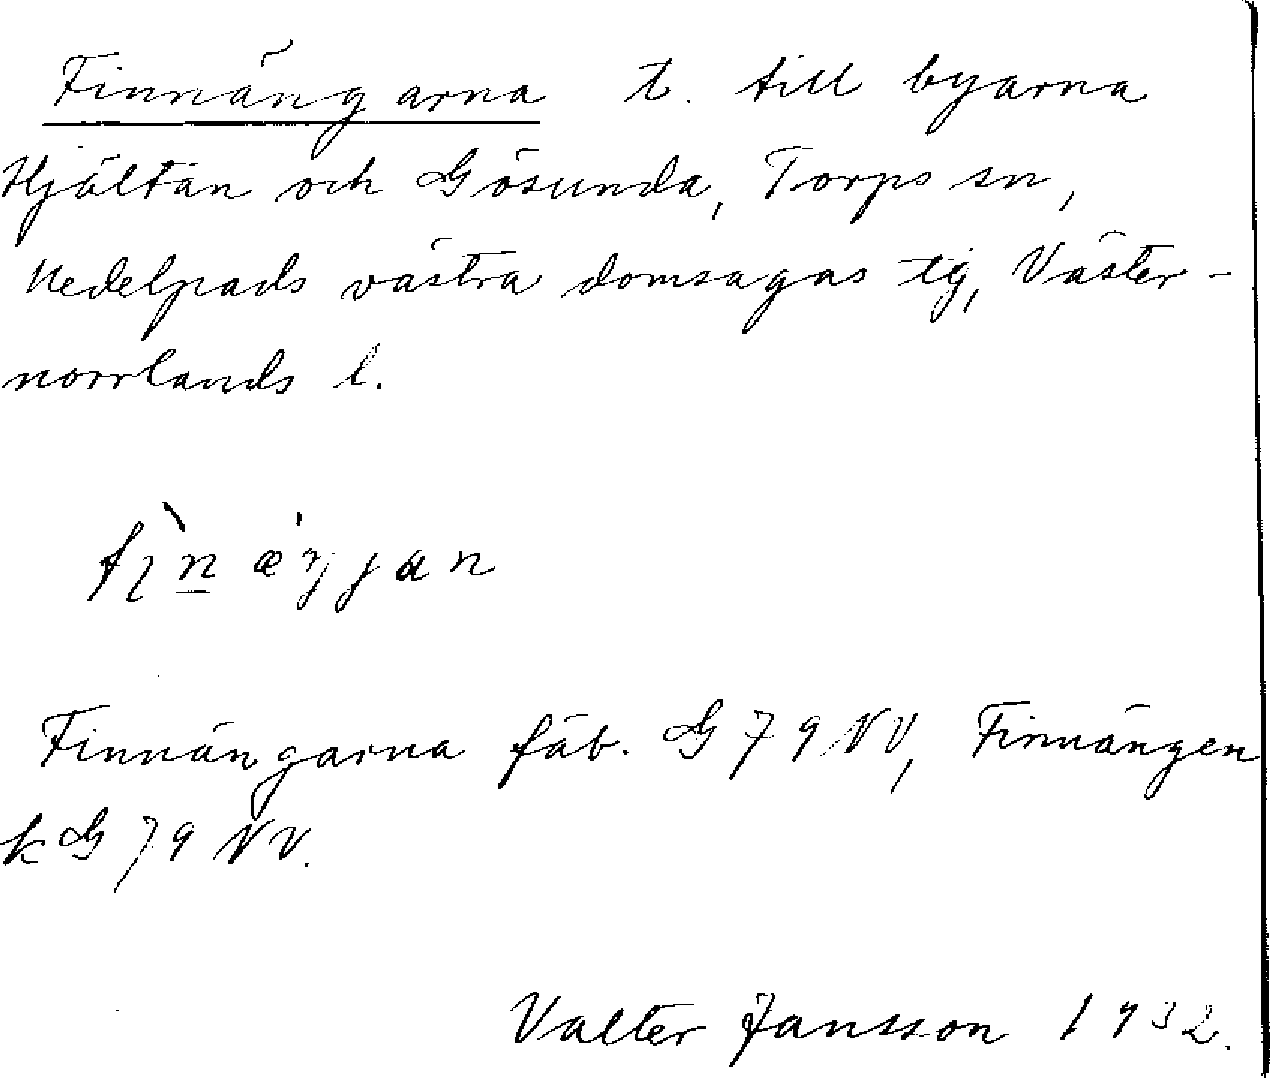 Finnängarna t. till byarna
Hjältan och Gösunda, Torps sn,
Medelpads västra domsagas tg, Väster-
norrlands l.
fìnæŋjan
Finnängarna fäb. G 79 NV, Finnängen
k G 79 NV.
Valter Jansson 1932.